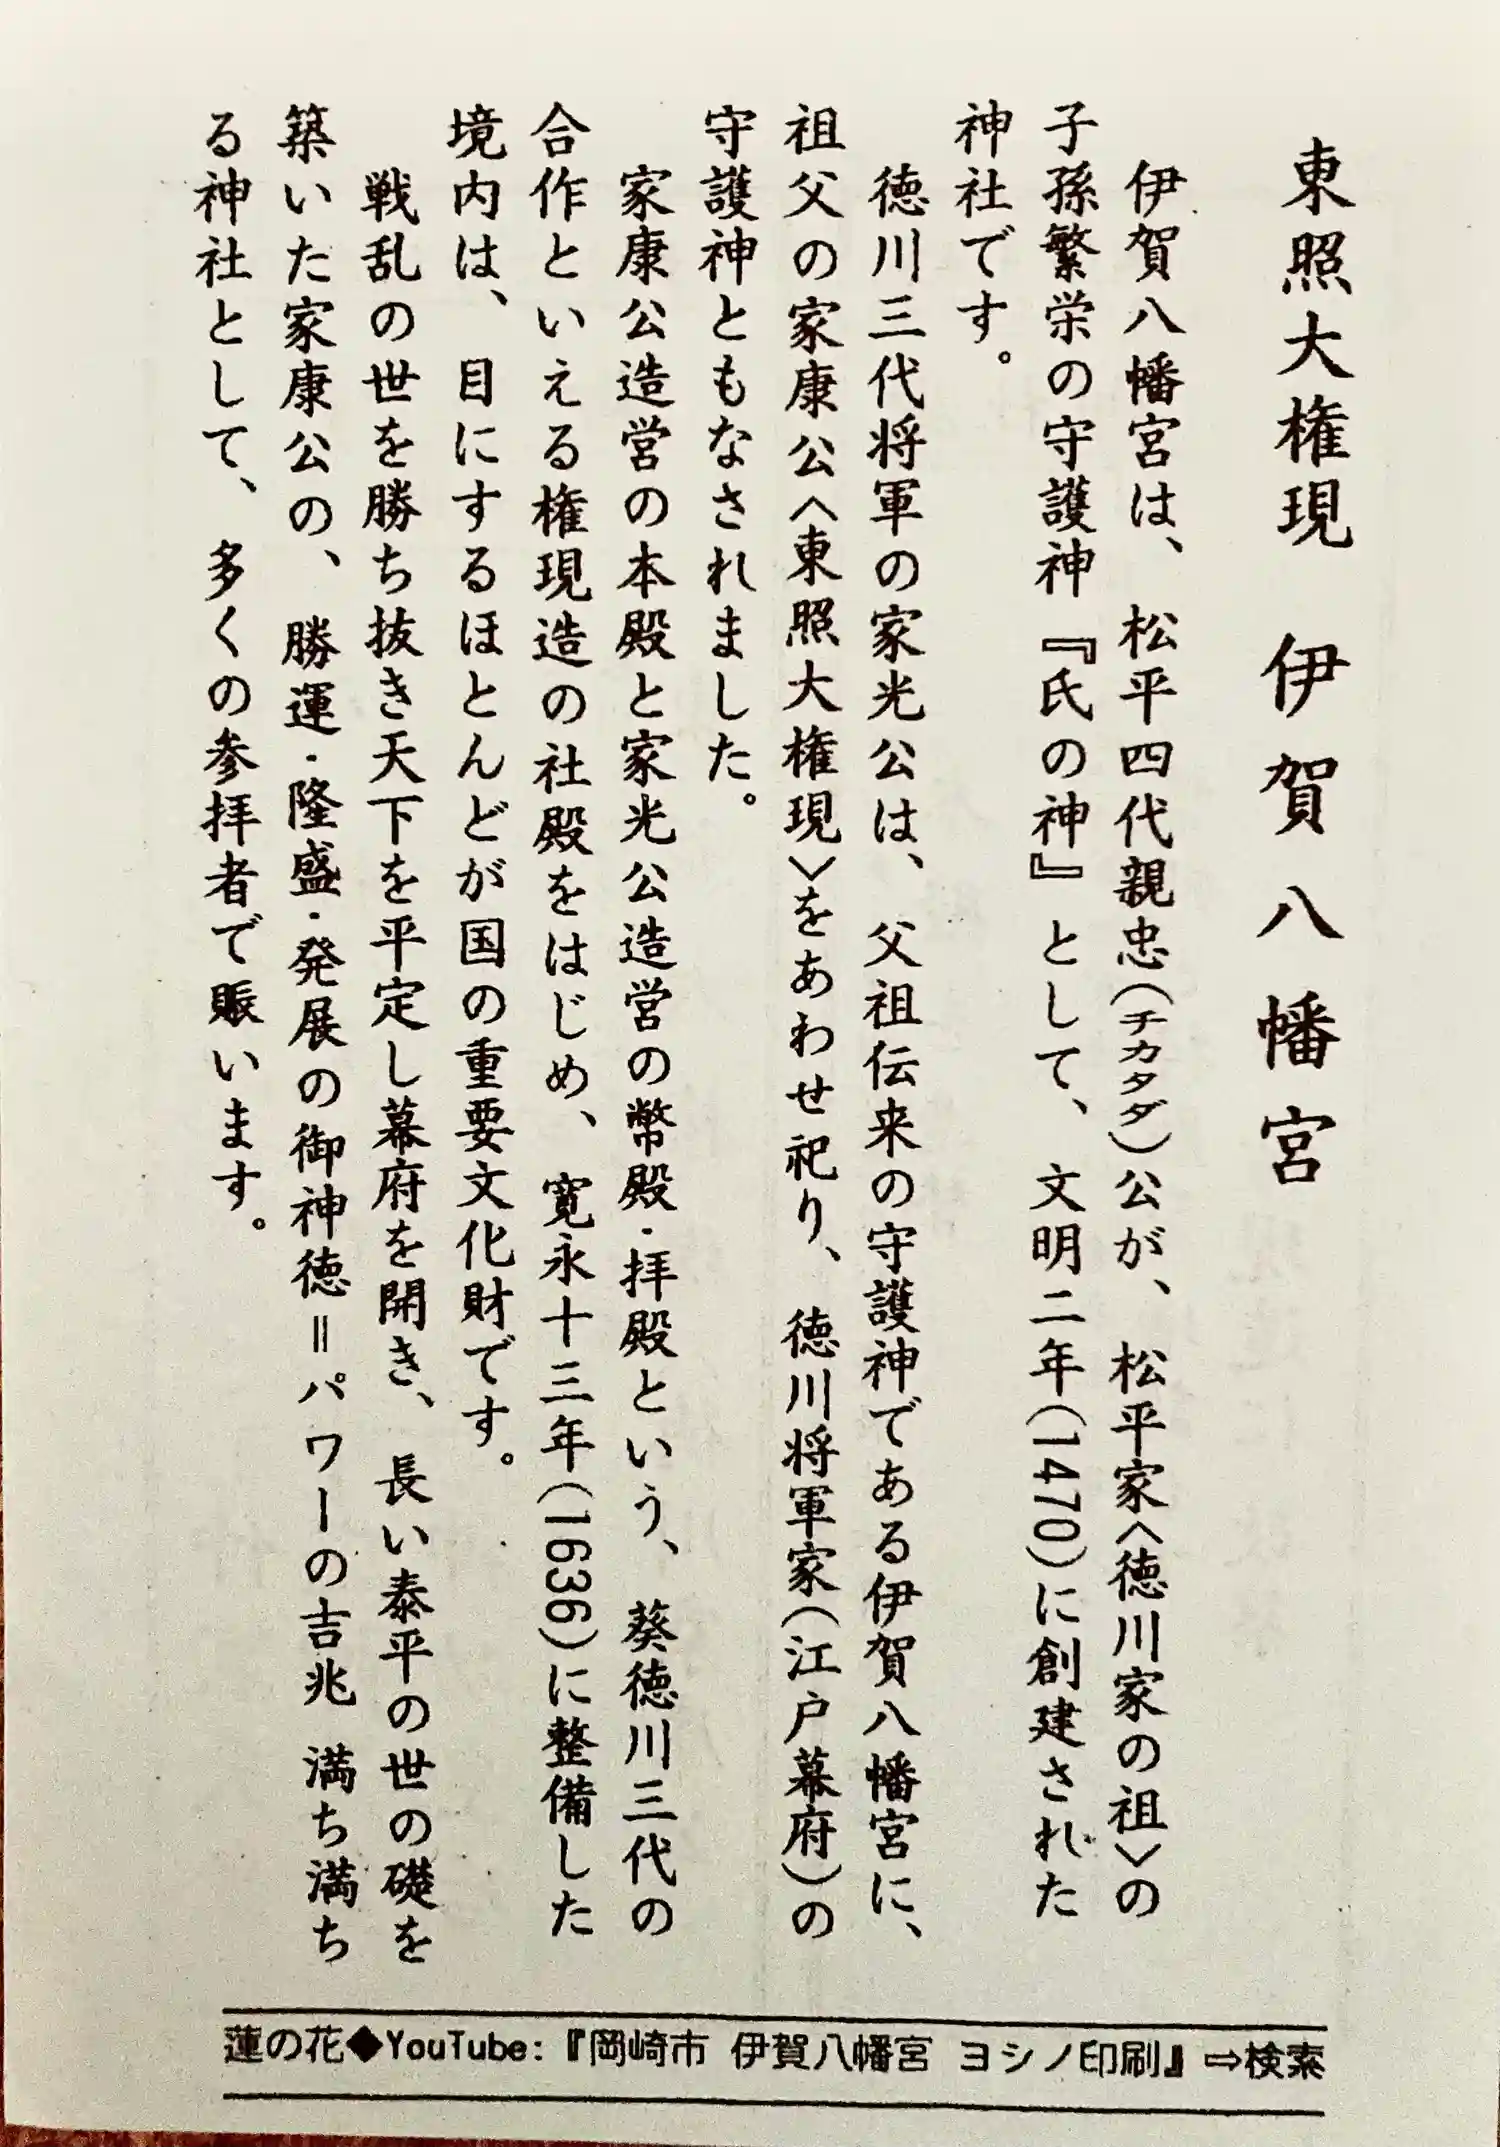 東照大権現　伊賀八幡宮
伊賀八幡宮は、松平四代親忠(チカタダ)公が、松平家<徳川家の祖>の
子孫繁栄の守護神『氏の神』として、文明二年(1470)に創建された
神社です。
徳川三代将軍の家光公は、父祖伝来の守護神である伊賀八幡宮に、
祖父の家康公<東照大権現>をあわせ祀り、徳川将軍家(江戸幕府)の
守護神ともなされました。
家康公造営の本殿と家光公造営の幣殿・拝殿という、葵徳川三代の
合作といえる権現造の社殿をはじめ、寛永十三年(1636)に整備した
境内は、目にするほとんどが国の重要文化財です。
戦乱の世を勝ち抜き天下を平定し幕府を開き、長い泰平の世の礎を
築いた家康公の、勝運・隆盛・発展の御神徳＝パワーの吉兆 満ち満ち
る神社として、多くの参拝者で賑います。
蓮の花◆YouTube:『岡崎市 伊賀八幡宮 ヨシノ印刷』⇨検索